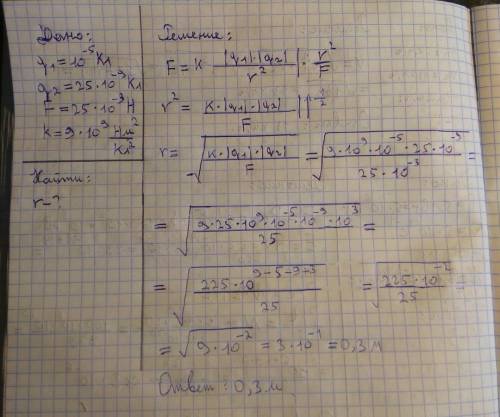 Дано:
q₁ = 10⁻⁵ Кл
q₂ = 25·10⁻⁹ Кл
F = 25·10⁻³ Н
k = 9·10⁹ Нм²/Кл²
Найти:
r - ?
Решение:
F = k · |q₁|·|q₂| / r² | · r²/F
r² = k·|q₁|·|q₂| / F |↑^½
r = √(k·|q₁|·|q₂| / F) = √(9·10⁹·10⁻⁵·25·10⁻⁹ / 25·10⁻³) =
= √(9·25·10⁹·10⁻⁵·10⁻⁹·10³ / 25) =
= √(225·10⁹⁻⁵⁻⁹⁺³ / 25) = √(225·10⁻² / 25) =
= √(9·10⁻²) = 3·10⁻¹ = 0,3 м
Ответ: 0,3 м.